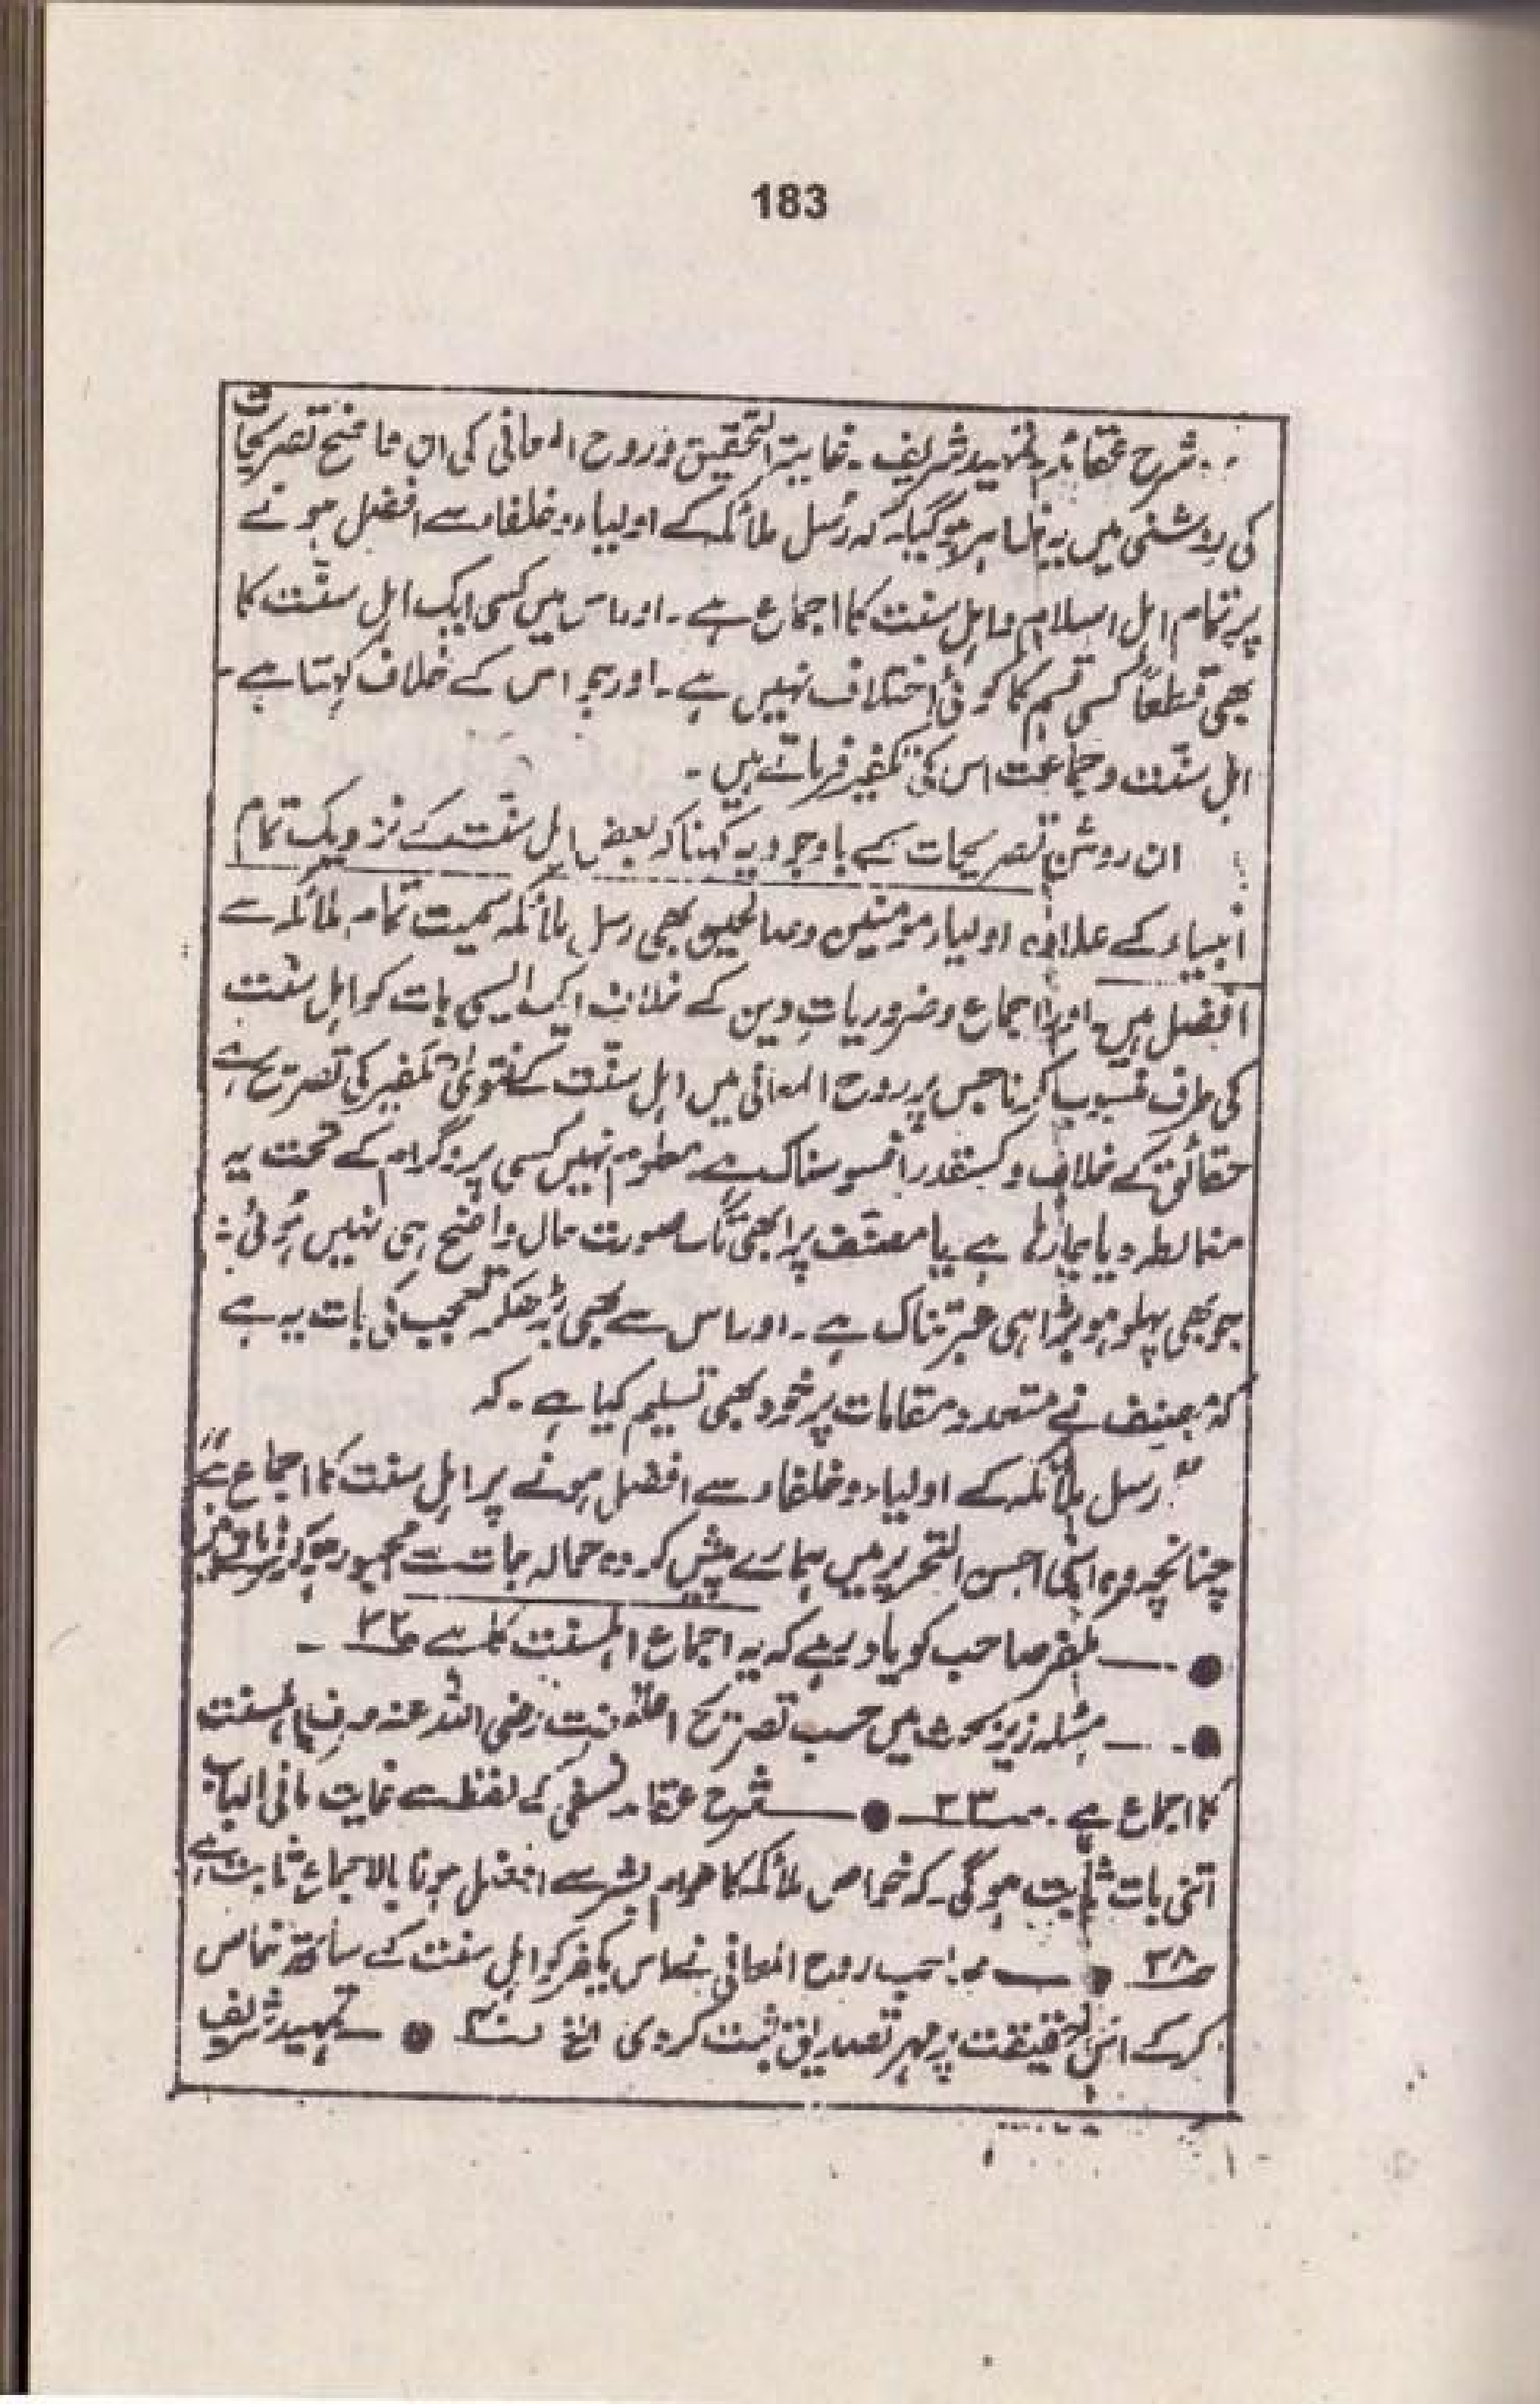 183
شرح عقائد۔ تمہید شریف۔ غایۃ التحقیق و روح المعانی کی ان واضح تصریحات
کی روشنی میں یہ ظاہر ہوگیا۔ کہ رُسل ملائکہ کے اولیاء و خلفاء سے افضل ہونے
پر تمام اہل اسلام و اہل سنت کا اجماع ہے۔ اور اس میں کسی ایک اہل سنّت کا
بھی قطعاً کسی قسم کا کوئی اختلاف نہیں ہے۔ اور جو اس کے خلاف کہتا ہے۔
اہل سنّت و جماعت اس کی تکفیر فرماتے ہیں۔
ان روشن تصریحات کے باوجود یہ کہنا کہ بعض اہل سنّت کے نزدیک تمام
انبیاء کے علاوہ اولیاء مومنین و صالحین بھی رسل ملائکہ سمیت تمام ملائکہ سے
افضل ہیں۔ اور اجماع و ضروریاتِ دین کے خلاف ایک ایسی بات کو اہل سنّت
کی طرف منسوب کرنا جس پر روح المعانی میں اہل سنّت کے فتویٰ تکفیر کی تصریح ہے
حقائق کے خلاف و کسقدر افسوسناک ہے۔ معلوم نہیں کسی پروگرام کے تحت یہ
مغالطہ دیا جارہا ہے یا مصنّف پر ابھی تک صورت حال واضح ہی نہیں ہُوئی:
جو بھی پہلو ہو بڑا ہی عبرتناک ہے۔ اور اس سے بھی بڑھکر تعجب کی بات یہ ہے
کہ مصنف نے متعدد مقامات پر خود بھی تسلیم کیا ہے۔ کہ
"رسل ملائکہ کے اولیاء و خلفاء سے افضل ہونے پر اہل سنت کا اجماع ہے"
چنانچہ وہ اپنی احسن التحریر میں ہمارے پیش کردہ حوالہ جات سے مجبور ہوکر
● —— مکفر صاحب کو یاد رہے کہ یہ اجماع اہلسنت کا ہے ص۳۲ -
● —— مسئلہ زیر بحث میں حسب تصریح اعلیٰحضرت رضی اللہ عنہ صرف اہلسنت
کا اجماع ہے۔ ص۳۳ ● —— شرح عقائد نسفی کے لفظ سے غایت مافی الباب
اتنی بات ثابت ہوگی۔ کہ خواص ملائکہ کا عوام بشر سے افضل ہونا بالاجماع ثابت ہے
ص۳۸ ● —— صاحب روح المعانی نے اس تکفیر کو اہل سنت کے ساتھ خاص
کرکے اسی حقیقت پر مہر تصدیق ثبت کردی الخ ص۴۰ ● —— تمہید شریف